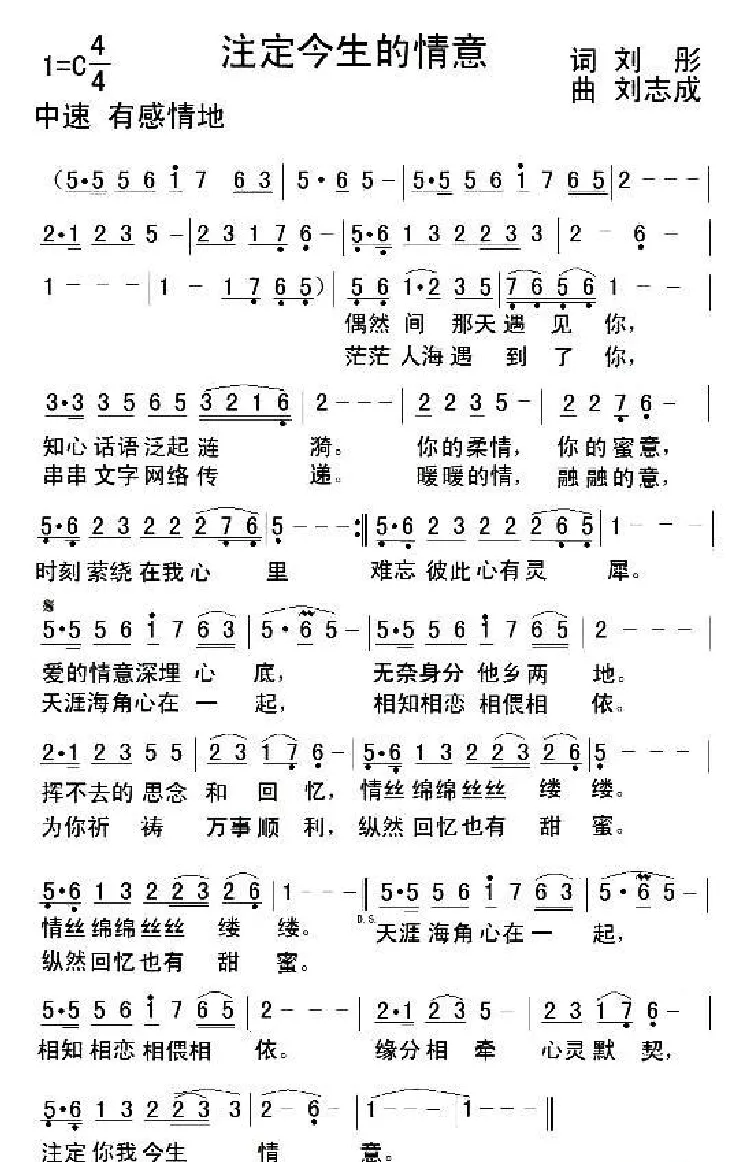 1=C 4/4 注定今生的情意 词 刘 彤
曲 刘志成
中速 有感情地
（5·5 5 6 i 7 6 3 | 5 · 6 5 - | 5·5 5 6 i 7 6 5 | 2 - - - |
2·1 2 3 5 - | 2 3 1 7 6 - | 5·6 1 3 2 2 3 3 | 2 - 6 - |
1 - - - | 1 - 1 7 6 5 ） | 5 6 1·2 3 5 | 7 6 5 6 1 - - |
偶然 间 那天 遇 见 你，
茫茫 人海 遇 到 了 你，
3·3 3 5 6 5 3 2 1 6 | 2 - - - | 2 2 3 5 - | 2 2 7 6 - |
知心 话语 泛起 涟 漪。 你的柔情， 你的蜜意，
串串 文字 网络 传 递。 暖暖的情， 融融的意，
5·6 2 3 2 2 2 7 6 | 5 - - - :‖ 5·6 2 3 2 2 2 6 5 | 1 - - - |
时刻 萦绕 在我 心 里 难忘 彼此 心有 灵 犀。
𝄋
5·5 5 6 i 7 6 3 | 5 · 6 5 - | 5·5 5 6 i 7 6 5 | 2 - - - |
爱的情意深埋 心 底， 无奈身分 他乡 两 地。
天涯海角心在 一 起， 相知相恋 相偎相 依。
2·1 2 3 5 5 | 2 3 1 7 6 - | 5·6 1 3 2 2 3 2 6 | 5 - - - |
挥不去的 思念 和 回 忆， 情丝 绵绵 丝丝 缕 缕。
为你祈 祷 万事 顺 利， 纵然 回忆 也有 甜 蜜。
5·6 1 3 2 2 3 2 6 | 1 - - - ‖ 5·5 5 6 i 7 6 3 | 5 · 6 5 - |
情丝 绵绵 丝丝 缕 缕。 D.S. 天涯 海角 心在 一 起，
纵然回忆也有 甜 蜜。
5·5 5 6 i 7 6 5 | 2 - - - | 2·1 2 3 5 - | 2 3 1 7 6 - |
相知 相恋 相偎相 依。 缘分 相 牵 心灵 默 契，
5·6 1 3 2 2 3 | 2 - 6 - | 1 - - | 1 - - - ‖
注定 你我 今生 情 意。